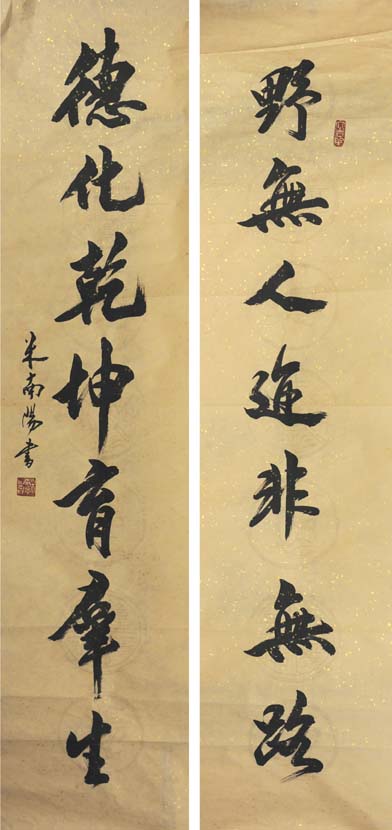 野無人迹非無路
德化乾坤育羣生
米南陽書